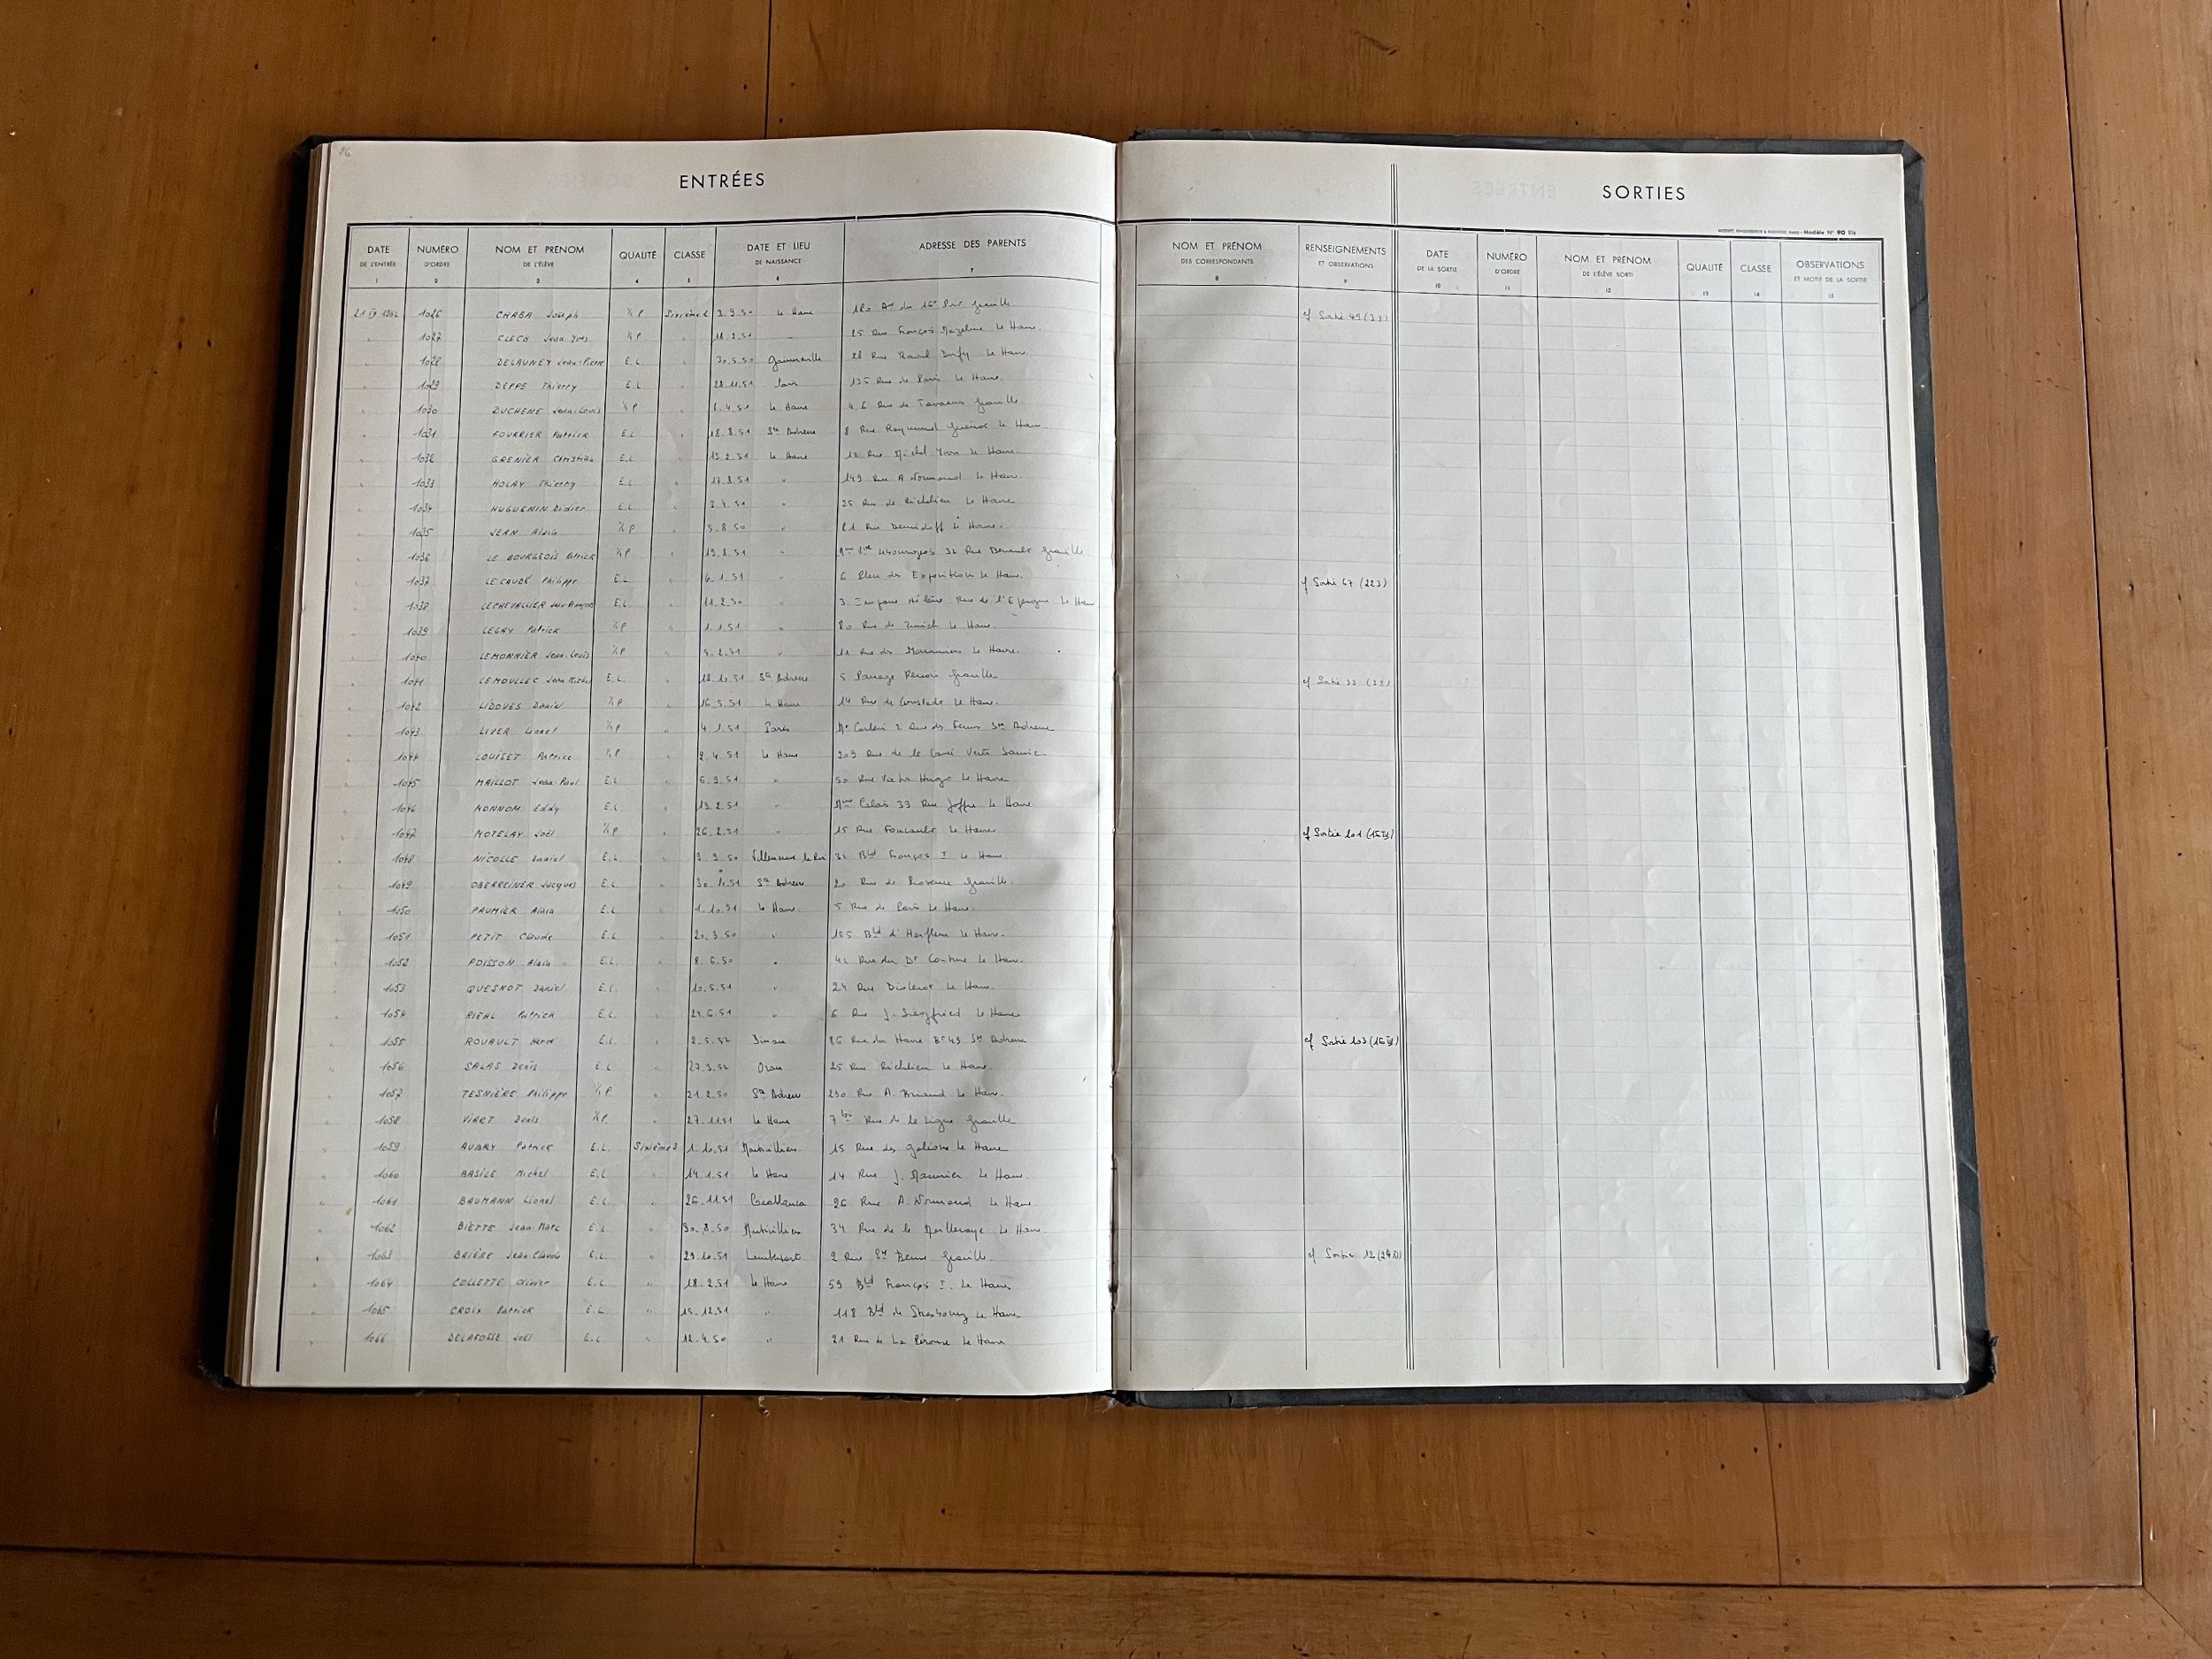 ENTRÉES
DATE DE L'ENTRÉE 1 NUMÉRO D'ORDRE 2 NOM ET PRÉNOM DE L'ÉLÈVE 3 QUALITÉ 4 CLASSE 5 DATE ET LIEU DE NAISSANCE 6 ADRESSE DES PARENTS 7
1026 CHABA Joseph ½ P Sixième 2 3.9.50 Le Havre
1027 CLECH Jean Yves ½ P 11.2.51 " 25 Rue François Mazeline Le Havre
1028 DELAUNEY Jean-Pierre E.L. 30.5.50 Gainneville Rue Raoul Dufy Le Havre
1029 DEPPE Thierry E.L. 28.11.51 Paris 135 Rue de Paris Le Havre
1030 DUCHENE Jean-Louis ½ P 1.4.51 Le Havre Rue de Graville
1031 FOURRIER Patrick E.L. 18.8.51 Ste Adresse 8 Rue Raymond Guénot Le Havre
1032 GRENIER Christian E.L. 13.2.51 Le Havre 12 Rue Michel Yvon Le Havre
1033 HOLAY Thierry E.L. 17.8.51 " 149 Rue A Normand Le Havre
1034 HUGUENIN Didier E.L. 3.4.51 " 25 Rue de Richelieu Le Havre
1035 JEAN Alain ½ P 5.8.50 " 81 Rue Demidoff Le Havre
1036 LE BOURGEOIS Patrick ½ P 19.8.51 " Mme Vve Lebourgeois 32 Rue Graville
1037 LECAUDÉ Philippe E.L. 6.1.51 " 6 Place des Expositions Le Havre
1038 LECHEVALLIER Jean-François E.L. 11.2.50 " 3 Impasse Hélène Rue de l'Epargne Le Havre
1039 LEGAY Patrick ½ P 1.1.51 " 80 Rue de Zurich Le Havre
1040 LEMONNIER Jean-Louis ½ P 5.2.51 " 11 Rue des Marronniers Le Havre
1041 LEMOULLEC Jean Michel E.L. 18.10.51 Ste Adresse 5 Passage Renoir Graville
1042 LIDOVES Daniel ½ P 16.5.51 Le Havre 14 Rue de Cronstadt Le Havre
1043 LIVER Lionel ½ P 4.1.51 Paris 2 Rue des Ste Adresse
1044 LOUISET Patrice ½ P 2.4.51 Le Havre 209 Rue de la Cavée Verte Sanvic
1045 MAILLOT Jean-Paul E.L. 6.9.51 " 50 Rue Victor Hugo Le Havre
1046 MONNOM Eddy E.L. 13.2.51 " Mme Calais 33 Rue Joffre Le Havre
1047 MOTELAY Joël ½ P 26.2.51 " 15 Rue Foucault Le Havre
1048 NICOLLE Daniel E.L. 9.9.50 Villeneuve le Roi 32 Bld François I Le Havre
1049 OBERREINER Jacques E.L. Ste Adresse 20 Rue de Provence Graville
1050 PAUMIER Alain E.L. 1.10.51 Le Havre 5 Rue de Paris Le Havre
1051 PETIT Claude E.L. 20.3.50 " 155 Bld d'Harfleur Le Havre
1052 POISSON Alain E.L. 8.6.50 " 42 Rue du Dr Le Havre
1053 QUESNOT Daniel E.L. 10.5.51 " 24 Rue Diderot Le Havre
1054 RIEHL Patrick E.L. 24.6.51 " 6 Rue J. Siegfried Le Havre
1055 ROUAULT Hervé E.L. 2.5.52 Dinan 86 Rue du Havre Bt 43 Ste Adresse
1056 SALAS Denis E.L. 27.3.52 Oran 25 Rue Richelieu Le Havre
1057 TESNIÈRE Philippe ½ P 21.2.50 Ste Adresse 230 Rue A. Briand Le Havre
1058 VIART Denis ½ P 27.11.51 Le Havre 7 bis Rue de la Ligne Graville
1059 AUBRY Patrick E.L. Sixième 3 1.10.51 Montivilliers 15 Rue des Galions Le Havre
1060 BASILE Michel E.L. 14.1.51 Le Havre 14 Rue J. Le Havre
1061 BAUMANN Lionel E.L. " 26.11.51 Casablanca 26 Rue A. Normand Le Havre
1062 BIETTE Jean-Marc E.L. " 30.8.50 Montivilliers 34 Rue de la Mailleraye Le Havre
1063 BRIÈRE Jean Claude E.L. " 29.10.51 2 Rue Graville
1064 COLLETTE Olivier E.L. " 18.2.51 Le Havre 59 Bld François I Le Havre
1065 CROIX Patrick E.L. " 15.12.51 " 118 Bld de Strasbourg Le Havre
1066 DELAFOSSE Joël E.L. " 12.4.50 " 21 Rue de La Pérouse Le Havre
SORTIES
Modèle N° 90 Bis
NOM ET PRÉNOM DES CORRESPONDANTS 8 RENSEIGNEMENTS ET OBSERVATIONS 9 DATE DE LA SORTIE 10 NUMÉRO D'ORDRE 11 NOM ET PRÉNOM DE L'ÉLÈVE SORTI 12 QUALITÉ 13 CLASSE 14 OBSERVATIONS ET MOTIF DE LA SORTIE 15
cf Sortie 49
cf Sortie 67
cf Sortie 33
cf Sortie 101
cf Sortie 103
cf Sortie 12